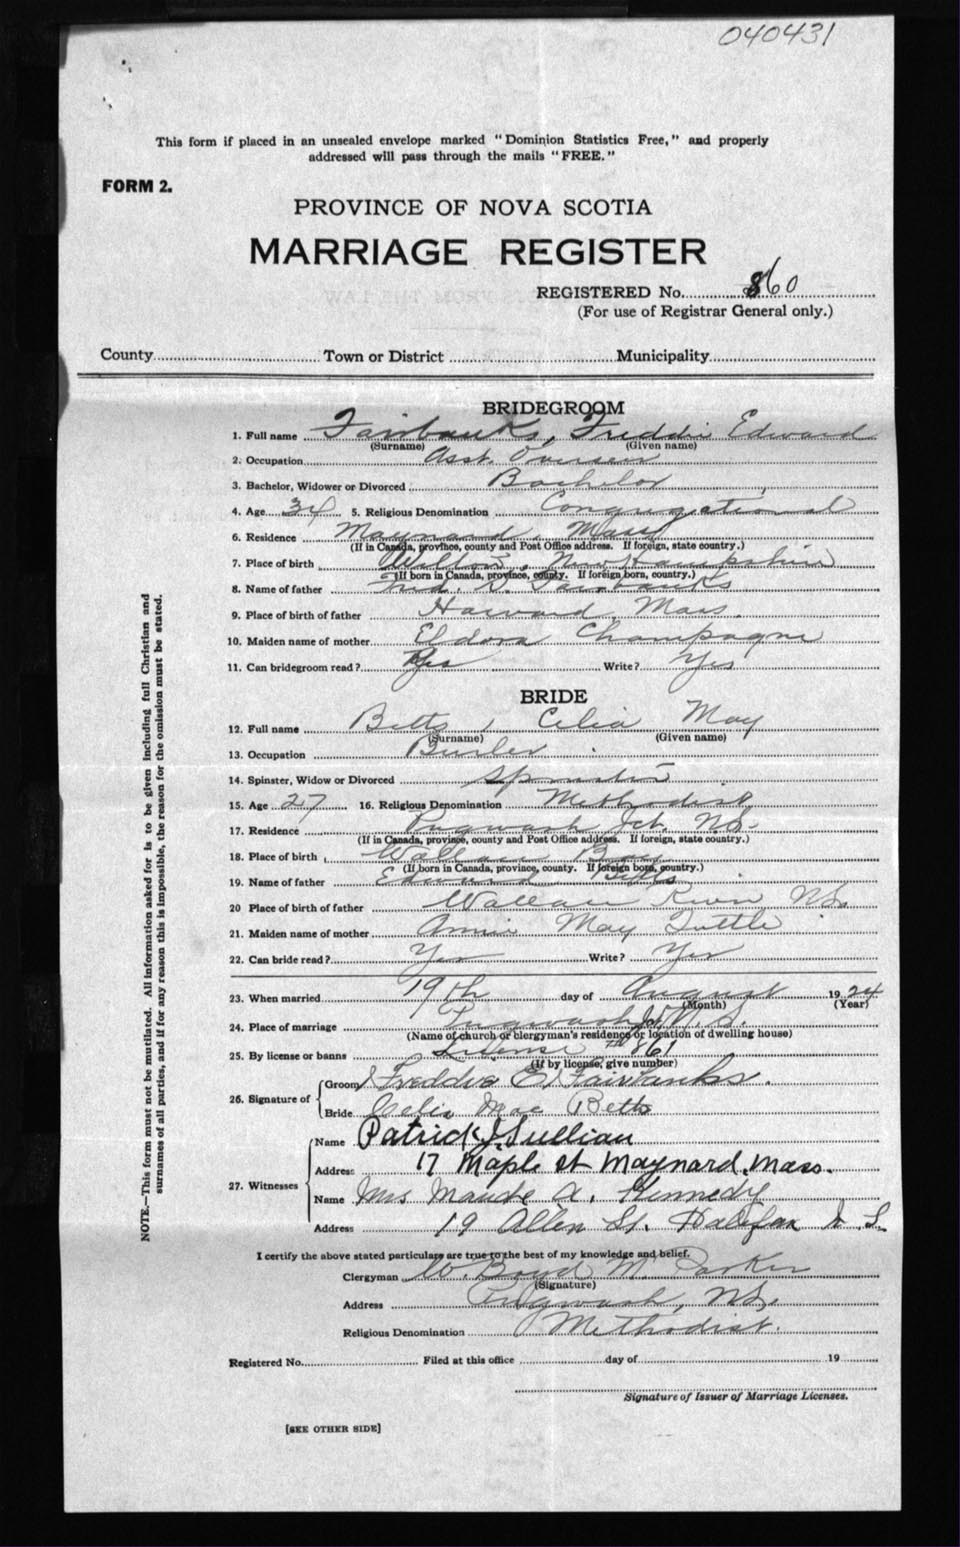 040431
This form if placed in an unsealed envelope marked "Dominion Statistics Free," and properly
addressed will pass through the mails "FREE."
FORM 2.
PROVINCE OF NOVA SCOTIA
MARRIAGE REGISTER
REGISTERED No. 860
(For use of Registrar General only.)
County Town or District Municipality
BRIDEGROOM
1. Full name Fairbanks, Freddie Edward
(Surname) (Given name)
2. Occupation Asst. Overseer
3. Bachelor, Widower or Divorced Bachelor
4. Age 34 5. Religious Denomination Congregational
6. Residence Maynard, Mass
(If in Canada, province, county and Post Office address. If foreign, state country.)
7. Place of birth Wilton, New Hampshire
(If born in Canada, province, county. If foreign born, country.)
8. Name of father Fred. Fairbanks
9. Place of birth of father Harvard, Mass.
10. Maiden name of mother Eldora Champagne
11. Can bridegroom read? Yes Write? Yes
BRIDE
12. Full name Betts, Celia May
(Surname) (Given name)
13. Occupation Burler
14. Spinster, Widow or Divorced Spinster
15. Age 27 16. Religious Denomination Methodist
17. Residence Pugwash Jct. N.S.
(If in Canada, province, county and Post Office address. If foreign, state country.)
18. Place of birth Wallace Bay
(If born in Canada, province, county. If foreign born, country.)
19. Name of father Edmund Betts
20 Place of birth of father Wallace River N.S.
21. Maiden name of mother Annie May Tuttle
22. Can bride read? Yes Write? Yes
23. When married 19th day of August 1924
(Month) (Year)
24. Place of marriage Pugwash Jct. N.S.
(Name of church or clergyman's residence or location of dwelling house)
25. By license or banns License 861
(If by license, give number)
26. Signature of Groom Freddie E. Fairbanks.
Bride Celia Mae Betts
27. Witnesses Name Patrick J. Sullian
Address 17 Maple st Maynard, Mass.
Name Mrs Maude A. Kennedy
Address 19 Allen St. Halifax N.S.
I certify the above stated particulars are true to the best of my knowledge and belief.
Clergyman W. Boyd M. Parker
(Signature)
Address Pugwash, N.S.
Religious Denomination Methodist.
Registered No. Filed at this office day of 19
Signature of Issuer of Marriage Licenses.
[SEE OTHER SIDE]
NOTE.—This form must not be mutilated. All information asked for is to be given including full Christian and
surnames of all parties, and if for any reason this is impossible, the reason for the omission must be stated.